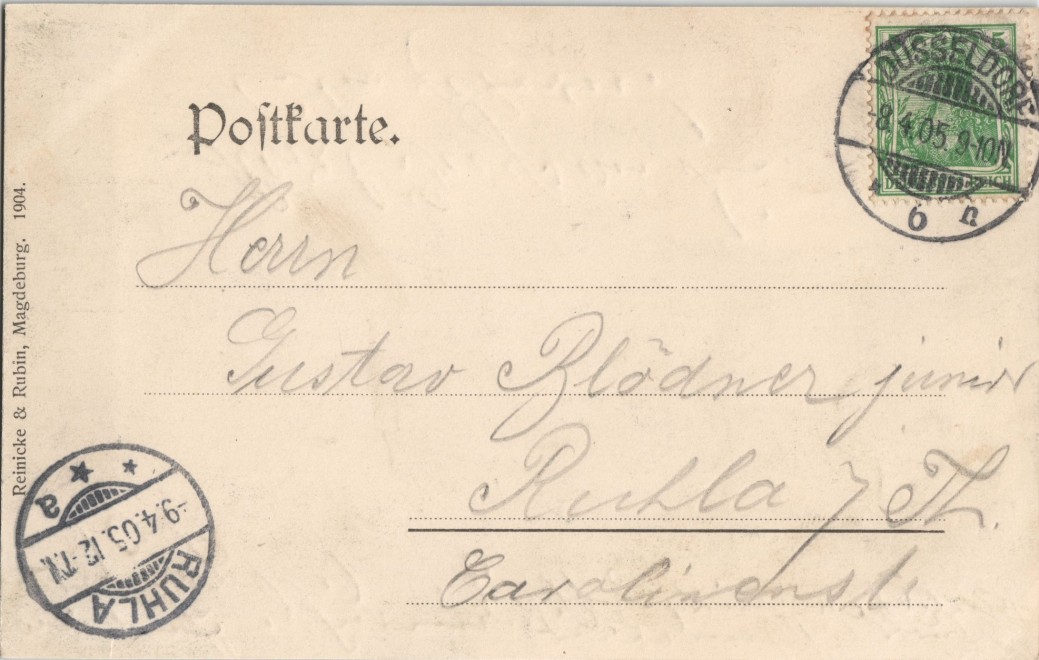 Postkarte.
DÜSSELDORF
-8.4.05.9-10N
6 n
5
Herrn
Gustav Blödner junior
Ruhla / Th.
Carolinenstr
Reinicke & Rubin, Magdeburg. 1904.
a
-9.4.05.12-1N.
RUHLA